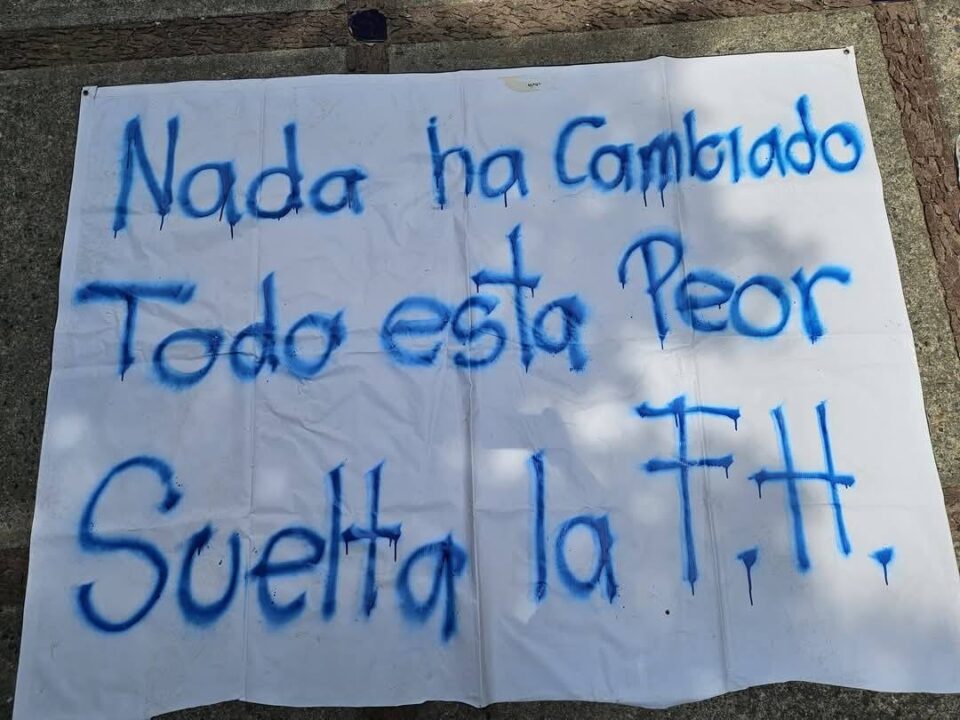 Nada ha Cambiado
Todo esta Peor
Suelta la F.H.